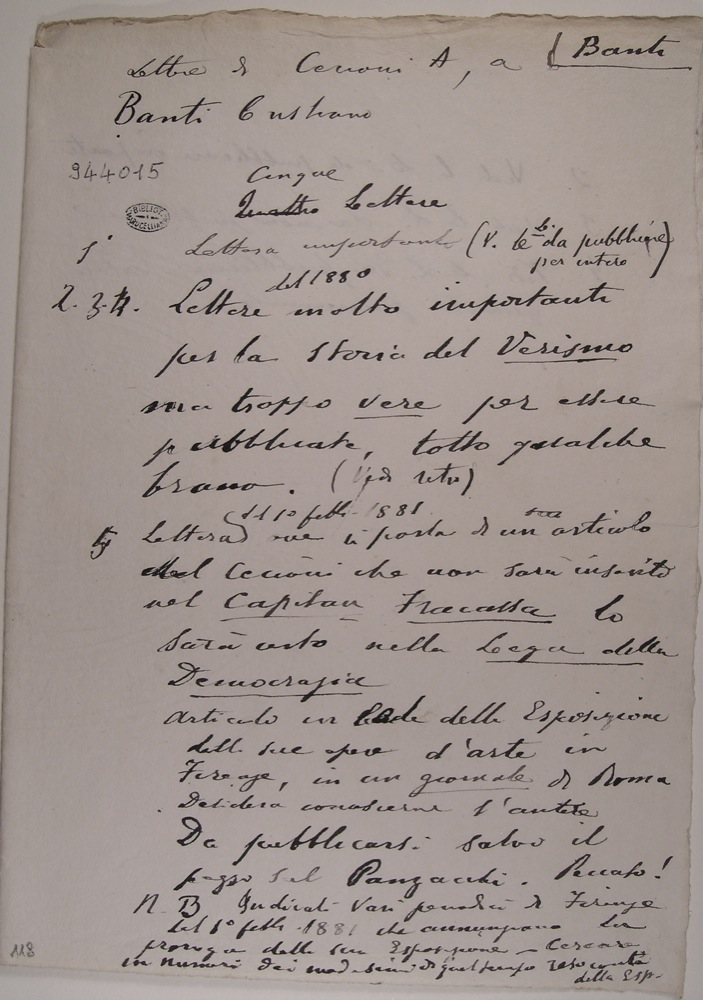 Lettere di Cecioni A, a Banti
Banti Cristiano
944015
Cinque
Quattro Lettere
BIBLIOT MARUCELLIANA
1ª Lettera importante (V. da pubblicare
per intero)
del 1880
2. 3. 4. Lettere molto importanti
per la Storia del Verismo
ma troppo vere per essere
pubblicate, tolto qualche
brano. (Vedi retro)
del 1º febb. 1881
5 Lettera ove si parla di un suo articolo
del Cecioni che non sarà inserito
nel Capitan Fracassa lo
sarà certo nella Lega della
Democrazia
Articolo in lode della Esposizione
delle sue opere d'arte in
Firenze, in un giornale di Roma
Desidera conoscerne l'autore
Da pubblicarsi salvo il
pezzo sul Panzacchi. Peccato!
N. B Indicati vari periodici di Firenze
del 1º febb. 1881 che annunziano la
proroga della sua Esposizione – Cercare
in numeri dei medesimi di quel tempo resoconti
della Esp.
118